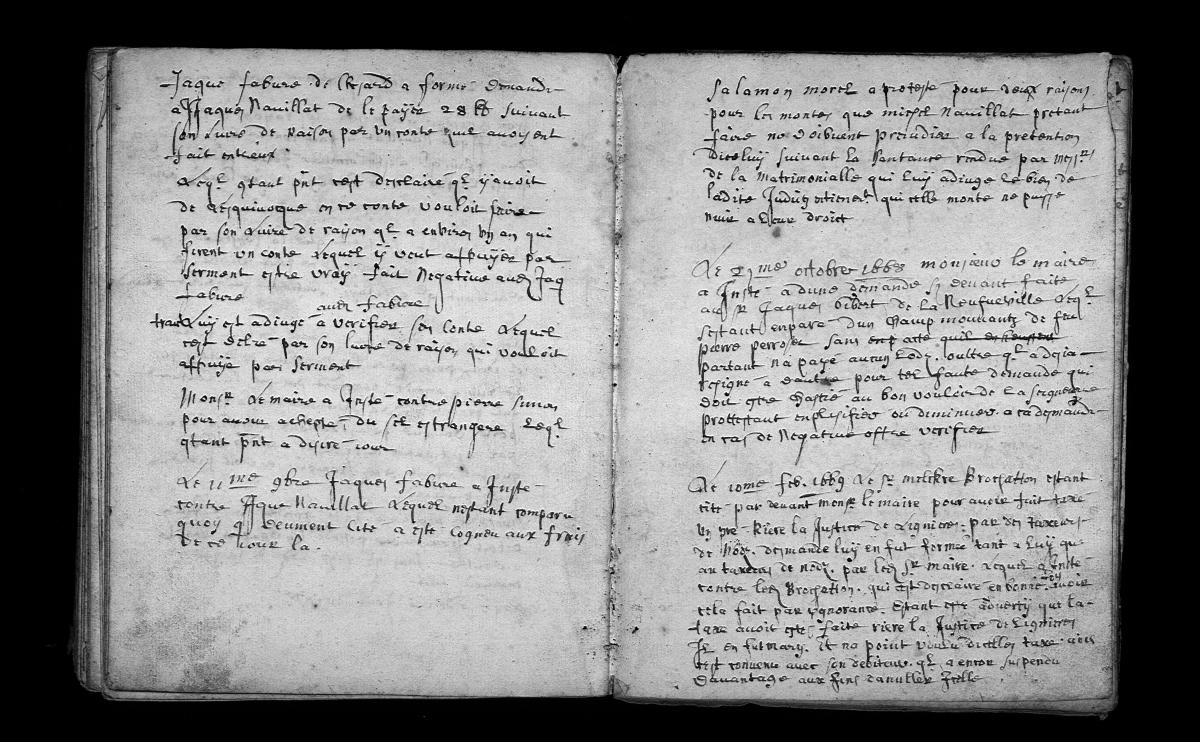 Jaque fabvre de Chesard a formé demande
a Jaques Navillat de le payer 28 lb suivant
son Livre de Raison par un conte quil avoyent
fait entreux
Leql. qtant pñt cest desclairé ql. y avoit
de Lesquivocque en ce conte vouloit faire
par son Livre de rayson ql. a environ un an qui
firent un conte Lequel il veut affuyer par
serment estre vray fait Negative avec Jaq
fabvre
avec fabvre
Luy est adiugé a verifier son conte Lequel
cest deliré par son livre de raison qui vouloit
affuyé par serment
Monsr. Le maire a Insté contre pierre simon
pour avoir achepté du sel estrangere Leql.
qtant pñt a desiré iour
Le 11me 9bre Jaques fabvre a Insté
contre Jque Navillat Lequel nestant comparu
quoy q deument cité a esté cogneu aux frais
de ce iour la.
Salamon morel a protesté pour deux raisons
pour les montes que michel Navillat pretant
faire ne doibvent preiudier a la pretention
diceluy suivant la santance rendue par messrs
de la matrimonialle qui luy adiuge le bien de
ladite Judith qui celle monte ne puisse
nuir a leur droict
Le 21me octobre 1668 monsieur le maire
a Insté a dune demande cy devant faite
au Sr Jaques Gibert de la Neufveville Leql.
sestant enparé dun champ mouvantz de feu
pierre perroset sans acte
partant na payé aucun Lodz. oultre ql. a desia
resigné a dautre pour tel faute demande qui
doit estre chastié au bon vouloir de la seigneurie
prottestant enplisfier ou diminuer a ca demande
en cas de Negative offre verifier
Le 10me feb. 1669 Le Sr. melchre Brochatton estant
cité par devant monsr le maire pour avoir fait taxe
un pre riere la Justice de Lignieres. par des taxeurs
de Nodz. desmande luy en fut formée tant a Luy que
au taxeurs de nodz. par ledt Sr maire. Lequel a Insté
contre ledt Brochatton. qui cest desclairé en bonne foy avoir
cela fait par ignorance. Estant esté adverty que la
taxe avoit esté faite riere la Justice de Lignieres
Il en fut mary. et na point voulu dicelles taxe. ains
cest convenu avec son debiteur. ql. a encor suspendu
davantage aux fins danuller Jcelle